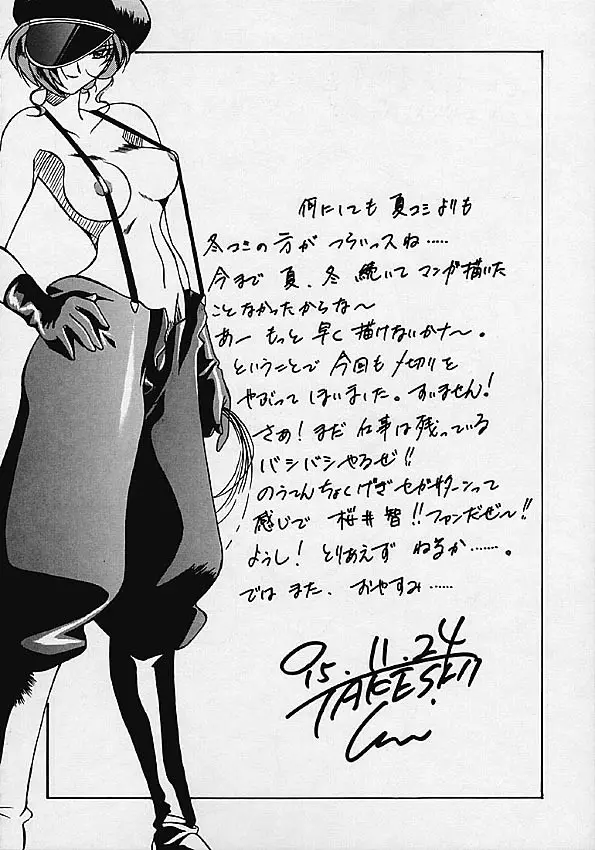 何にしても 夏コミよりも
冬コミの方が つらいっスね……
今まで 夏、冬 続いて マンガ描いた
ことなかったからな〜
あー もっと 早く描けないかナ〜。
ということで 今回も 〆切りを
やぶって しまいました。すいません!
さぁ! まだ 仕事は残っている
バシバシやるぜ!!
のうてんちょくげき セガサターンって
感じで 桜井智!! ファンだぜ〜!!
ようし! とりあえず ねるか……。
では また、おやすみ……
'95.11.24